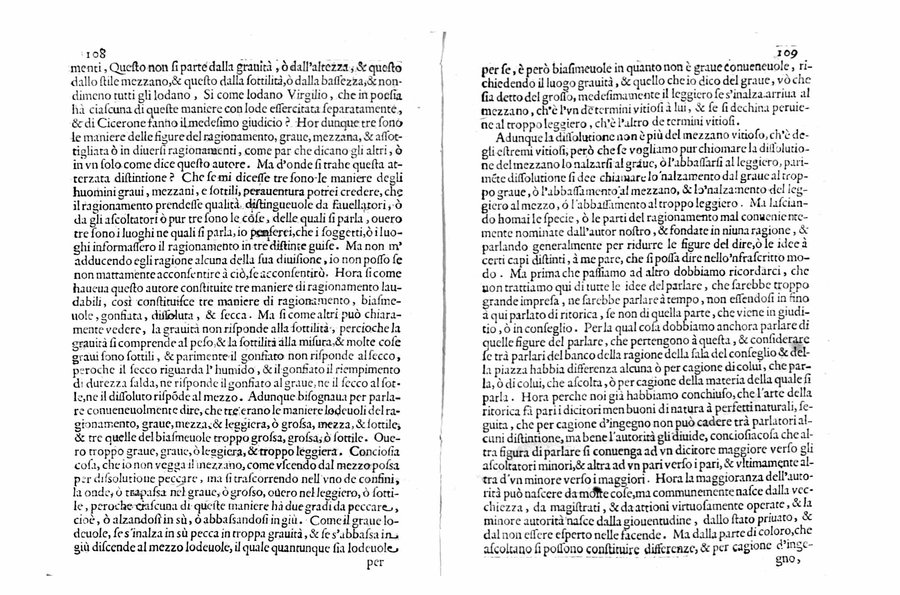 108
menti, Questo non si parte dalla grauità, ò dall'altezza, & questo
dallo stile mezzano, & questo dalla sottilità, ò dalla bassezza, & non-
dimeno tutti gli lodano, Si come lodano Virgilio, che in poesia
hà ciascuna di queste maniere con lode essercitata separatamente,
& di Cicerone fanno il medesimo giudicio? Hor dunque tre sono
le maniere delle figure del ragionamento, graue, mezzana, & assot-
tigliata ò in diuersi ragionamenti, come par che dicano gli altri, ò
in vn solo come dice questo autore. Ma d'onde si trahe questa at-
terzata distintione? Che se mi dicesse tre sono le maniere degli
huomini graui, mezzani, e sottili, perauentura potrei credere, che
il ragionamento prendesse qualità distingueuole da fauellatori, ò
da gli ascoltatori ò pur tre sono le cose, delle quali si parla, ouero
tre sono i luoghi ne quali si parla, io penserei, che i soggetti, ò i luo-
ghi informassero il ragionamento in tre distinte guise. Ma non m'
adducendo egli ragione alcuna della sua diuisione, io non posso se
non mattamente acconsentire à ciò, se acconsentirò. Hora si come
haueua questo autore constituite tre maniere di ragionamento lau-
dabili, così constituisce tre maniere di ragionamento, biasime-
uole, gonfiata, dissoluta, & secca. Ma si come altri può chiara-
mente vedere, la grauità non risponde alla sottilità, percioche la
grauità si comprende al peso, & la sottilità alla misura, & molte cose
graui sono sottili, & parimente il gonfiato non risponde al secco,
peroche il secco riguarda l'humido, & il gonfiato il riempimento
di durezza salda, ne risponde il gonfiato al graue, ne il secco al sot-
le, ne il dissoluto rispōde al mezzo. Adunque bisognaua per parla-
re conueneuolmente dire, che tre erano le maniere lodeuoli del ra-
gionamento, graue, mezza, & leggiera, ò grossa, mezza, & sottile,
& tre quelle del biasimeuole troppo grossa, grossa, ò sottile. Oue-
ro troppo graue, graue, ò leggiera, & troppo leggiera. Conciosia
cosa, che io non vegga il mezzano, come vscendo dal mezzo possa
per dissolutione peccare, ma si trascorrendo nell'vno de confini,
la onde, ò trapassa nel graue, ò grosso, ouero nel leggiero, ò sotti-
le, peroche ciascuna di queste maniere hà due gradi da peccare,
cioè, ò alzandosi in sù, ò abbassandosi in giù. Come il graue lo-
deuole, se s'inalza in sù pecca in troppa grauità, & se s'abbassa in
giù discende al mezzo lodeuole, il quale quantunque sia lodeuole
per
109
per se, è però biasimeuole in quanto non è graue conueneuole, ri-
chiedendo il luogo grauità, & quello che io dico del graue, vò che
sia detto del grosso, medesimamente il leggiero se s'inalza arriua al
mezzano, ch'è l'vn de termini vitiosi à lui, & se si dechina peruie-
ne al troppo leggiero, ch'è l'altro de termini vitiosi.
Adunque la dissolutione non è più del mezzano vitioso, ch'è de-
gli estremi vitiosi, però che se vogliamo pur chiomare la dissolutio-
ne del mezzano lo nalzarsi al graue, ò l'abbassarsi al leggiero, pari-
mēte dissolutione si dee chiamare lo'nalzamento dal graue al trop-
po graue, ò l'abbassamento al mezzano, & lo'nalzamento del leg-
giero al mezzo, ò l'abbassamento al troppo leggiero. Ma lascian-
do homai le specie, ò le parti del ragionamento mal conueniente-
mente nominate dall'autor nostro, & fondate in niuna ragione, &
parlando generalmente per ridurre le figure del dire, ò le idee à
certi capi distinti, à me pare, che si possa dire nello'nfrascritto mo-
do. Ma prima che passiamo ad altro dobbiamo ricordarci, che
non trattiamo qui di tutte le idee del parlare, che sarebbe troppo
grande impresa, ne sarebbe parlare à tempo, non essendosi in fino
à qui parlato di ritorica, se non di quella parte, che viene in giudi-
tio, ò in conseglio. Per la qual cosa dobbiamo anchora parlare di
quelle figure del parlare, che pertengono à questa, & considerare
se trà parlari del banco della ragione della sala del conseglio & del-
la piazza habbia differenza alcuna ò per cagione di colui, che par-
la, ò di colui, che ascolta, ò per cagione della materia della quale si
parla. Hora perche noi già habbiamo conchiuso, che l'arte della
ritorica fà pari i dicitori men buoni di natura à perfetti naturali, se-
guita, che per cagione d'ingegno non può cadere trà parlatori al-
cuni distintione, ma bene l'autorità gli diuide, conciosiacosa che al-
tra figura di parlare si conuenga ad vn dicitore maggiore verso gli
ascoltatori minori, & altra ad vn pari verso i pari, & vltimamente al-
tra d'vn minore verso i maggiori. Hora la maggioranza dell'auto-
rità può nascere da molte cose, ma communemente nasce dalla vec-
chiezza, da magistrati, & da attioni virtuosamente operate, & la
minore autorità nasce dalla giouentudine, dallo stato priuato, &
dal non essere esperto nelle facende. Ma dalla parte di coloro, che
ascoltano si possono constituire differenze, & per cagione d'inge-
gno,